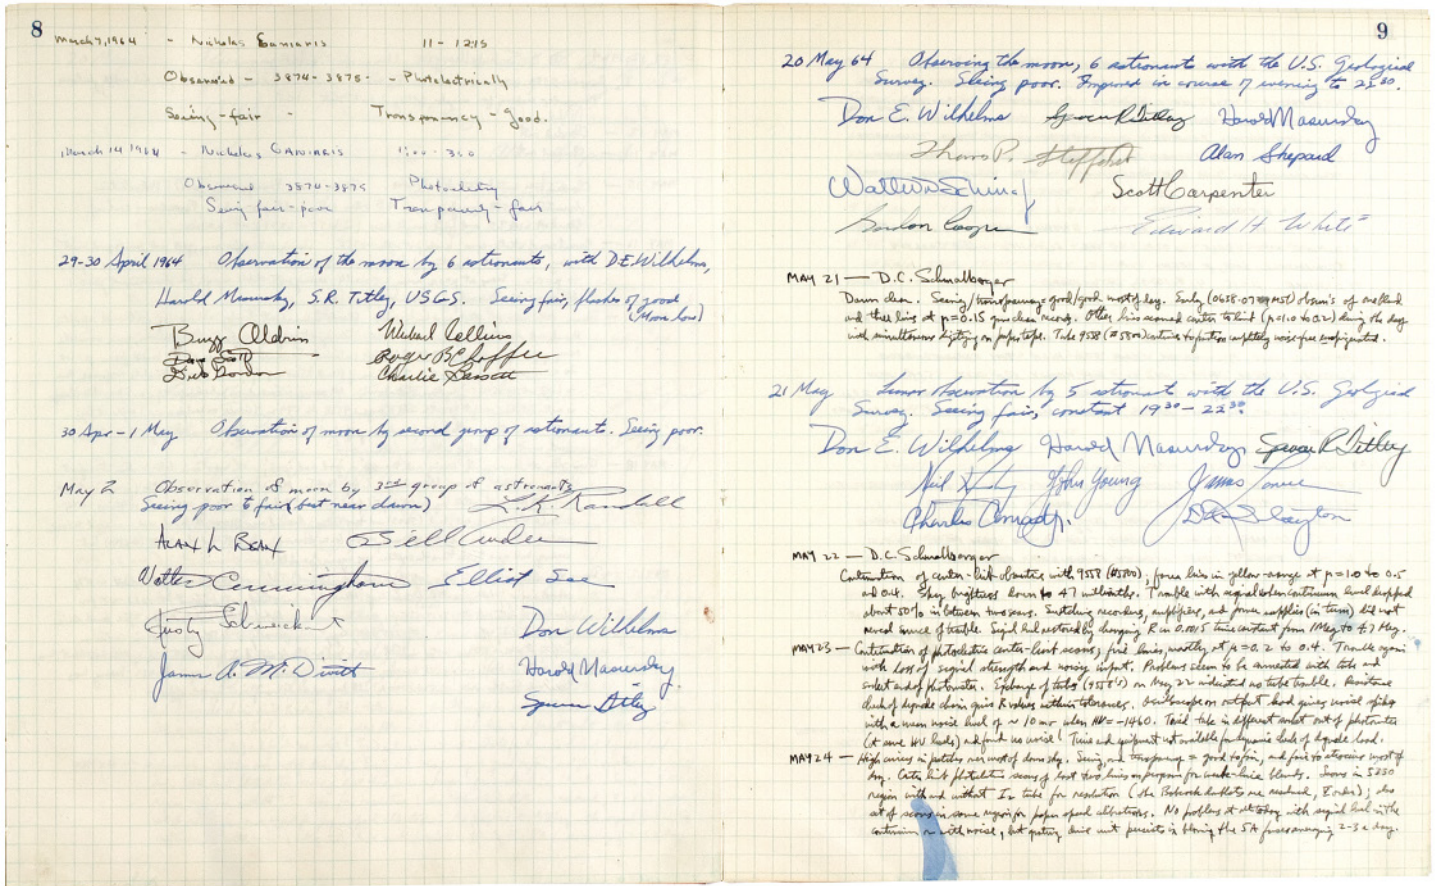 8
March 7, 1964 - Nicholas Ganiaris 11 - 12:15
Observed - 3874-3875 - Photoelectrically
Seeing - fair - Transparency - Good.
March 14 1964 - Nicholas GANIARIS
Observed 3874-3875
Seeing fair-poor Transparency - fair
29-30 April 1964 Observation of the moon by 6 astronauts, with D.E. Wilhelms,
Harold Masursky, S.R. Titley, USGS. Seeing fair, flashes of good
(Moon low)
Buzz Aldrin Michael Collins
Dave Scott Roger B Chaffee
Dick Gordon Charlie Bassett
30 Apr - 1 May Observation of moon by second group of astronauts. Seeing poor.
May 2 Observation of moon by 3rd group of astronauts
Seeing poor to fair (best near dawn) L.K. Randall
Alan L Bean Bill Anders
Walter Cunningham Elliot See
Rusty Schweickart Don Wilhelms
James A. McDivitt Harold Masursky
Spencer Titley
9
20 May 64 Observing the moon, 6 astronauts with the U.S. Geological
Survey. Seeing poor. Improved in course of evening to
Don E. Wilhelms Spencer R Titley Harold Masursky
Thomas P. Stafford Alan Shepard
Walter M Schirra Scott Carpenter
Gordon Cooper Edward H White
MAY 21 — D.C. Schmalberger
Dawn clear. Seeing/transparency = good/good most of day. Early
and three lines at μ=0.15 Other lines scanned center to limb (μ=1.0 to 0.2) during the day
with simultaneous digitizing on paper tape. Tube 9558 (#5800) continues to function completely noise-free
21 May Lunar observation by 5 astronauts with the U.S. Geological
Survey. Seeing fair, constant 19³⁰ - 22³⁰.
Don E. Wilhelms Harold Masursky Spencer R Titley
Neil John Young James Lovell
Charles Conrad Jr. D K Slayton
MAY 22 — D.C. Schmalberger
Continuation of center-limb with 9558 (#5800); lines in yellow-orange at μ=1.0 to 0.5
and 0.4. Trouble with signal when continuum level dropped
about 50% in between two scans. Switching recorders, amplifiers, and power supplies (in turn) did not
reveal source of trouble. Signal level restored by changing R in time constant from 1 Meg to 4.7 Meg.
MAY 23 — Continuation of photoelectric center-limb scans; five lines, mostly at μ=0.2 to 0.4. Trouble again
with loss of signal strength and noisy output. Problems seem to be connected with tube and
socket end of photometer. Exchange of tubes (9558's) on May 22 indicated no tube trouble. Resistance
check of dynode chain gives R values within tolerances. Oscilloscope on output load gives noise spikes
with a mean noise level of ~ 10 mv when HV = -1460. Tried tube in different socket out of photometer
(at same HV levels) and found no noise! Time and equipment not available for dynamic check of dynode load.
MAY 24 — High cirrus in patches over most of dome sky. Seeing and transparency = good to fair, and fair to atrocious most of
day. Center limb photoelectric scans of last two lines on program for weak-line blends. Scans in 5250
region with and without I₂ tube for resolution also
set of scans in same region for paper speed calibrations. No problems at all today with signal level in the
continuum or with noise, but grating drive unit persists in blowing the 5A fuses averaging 2-3 a day.